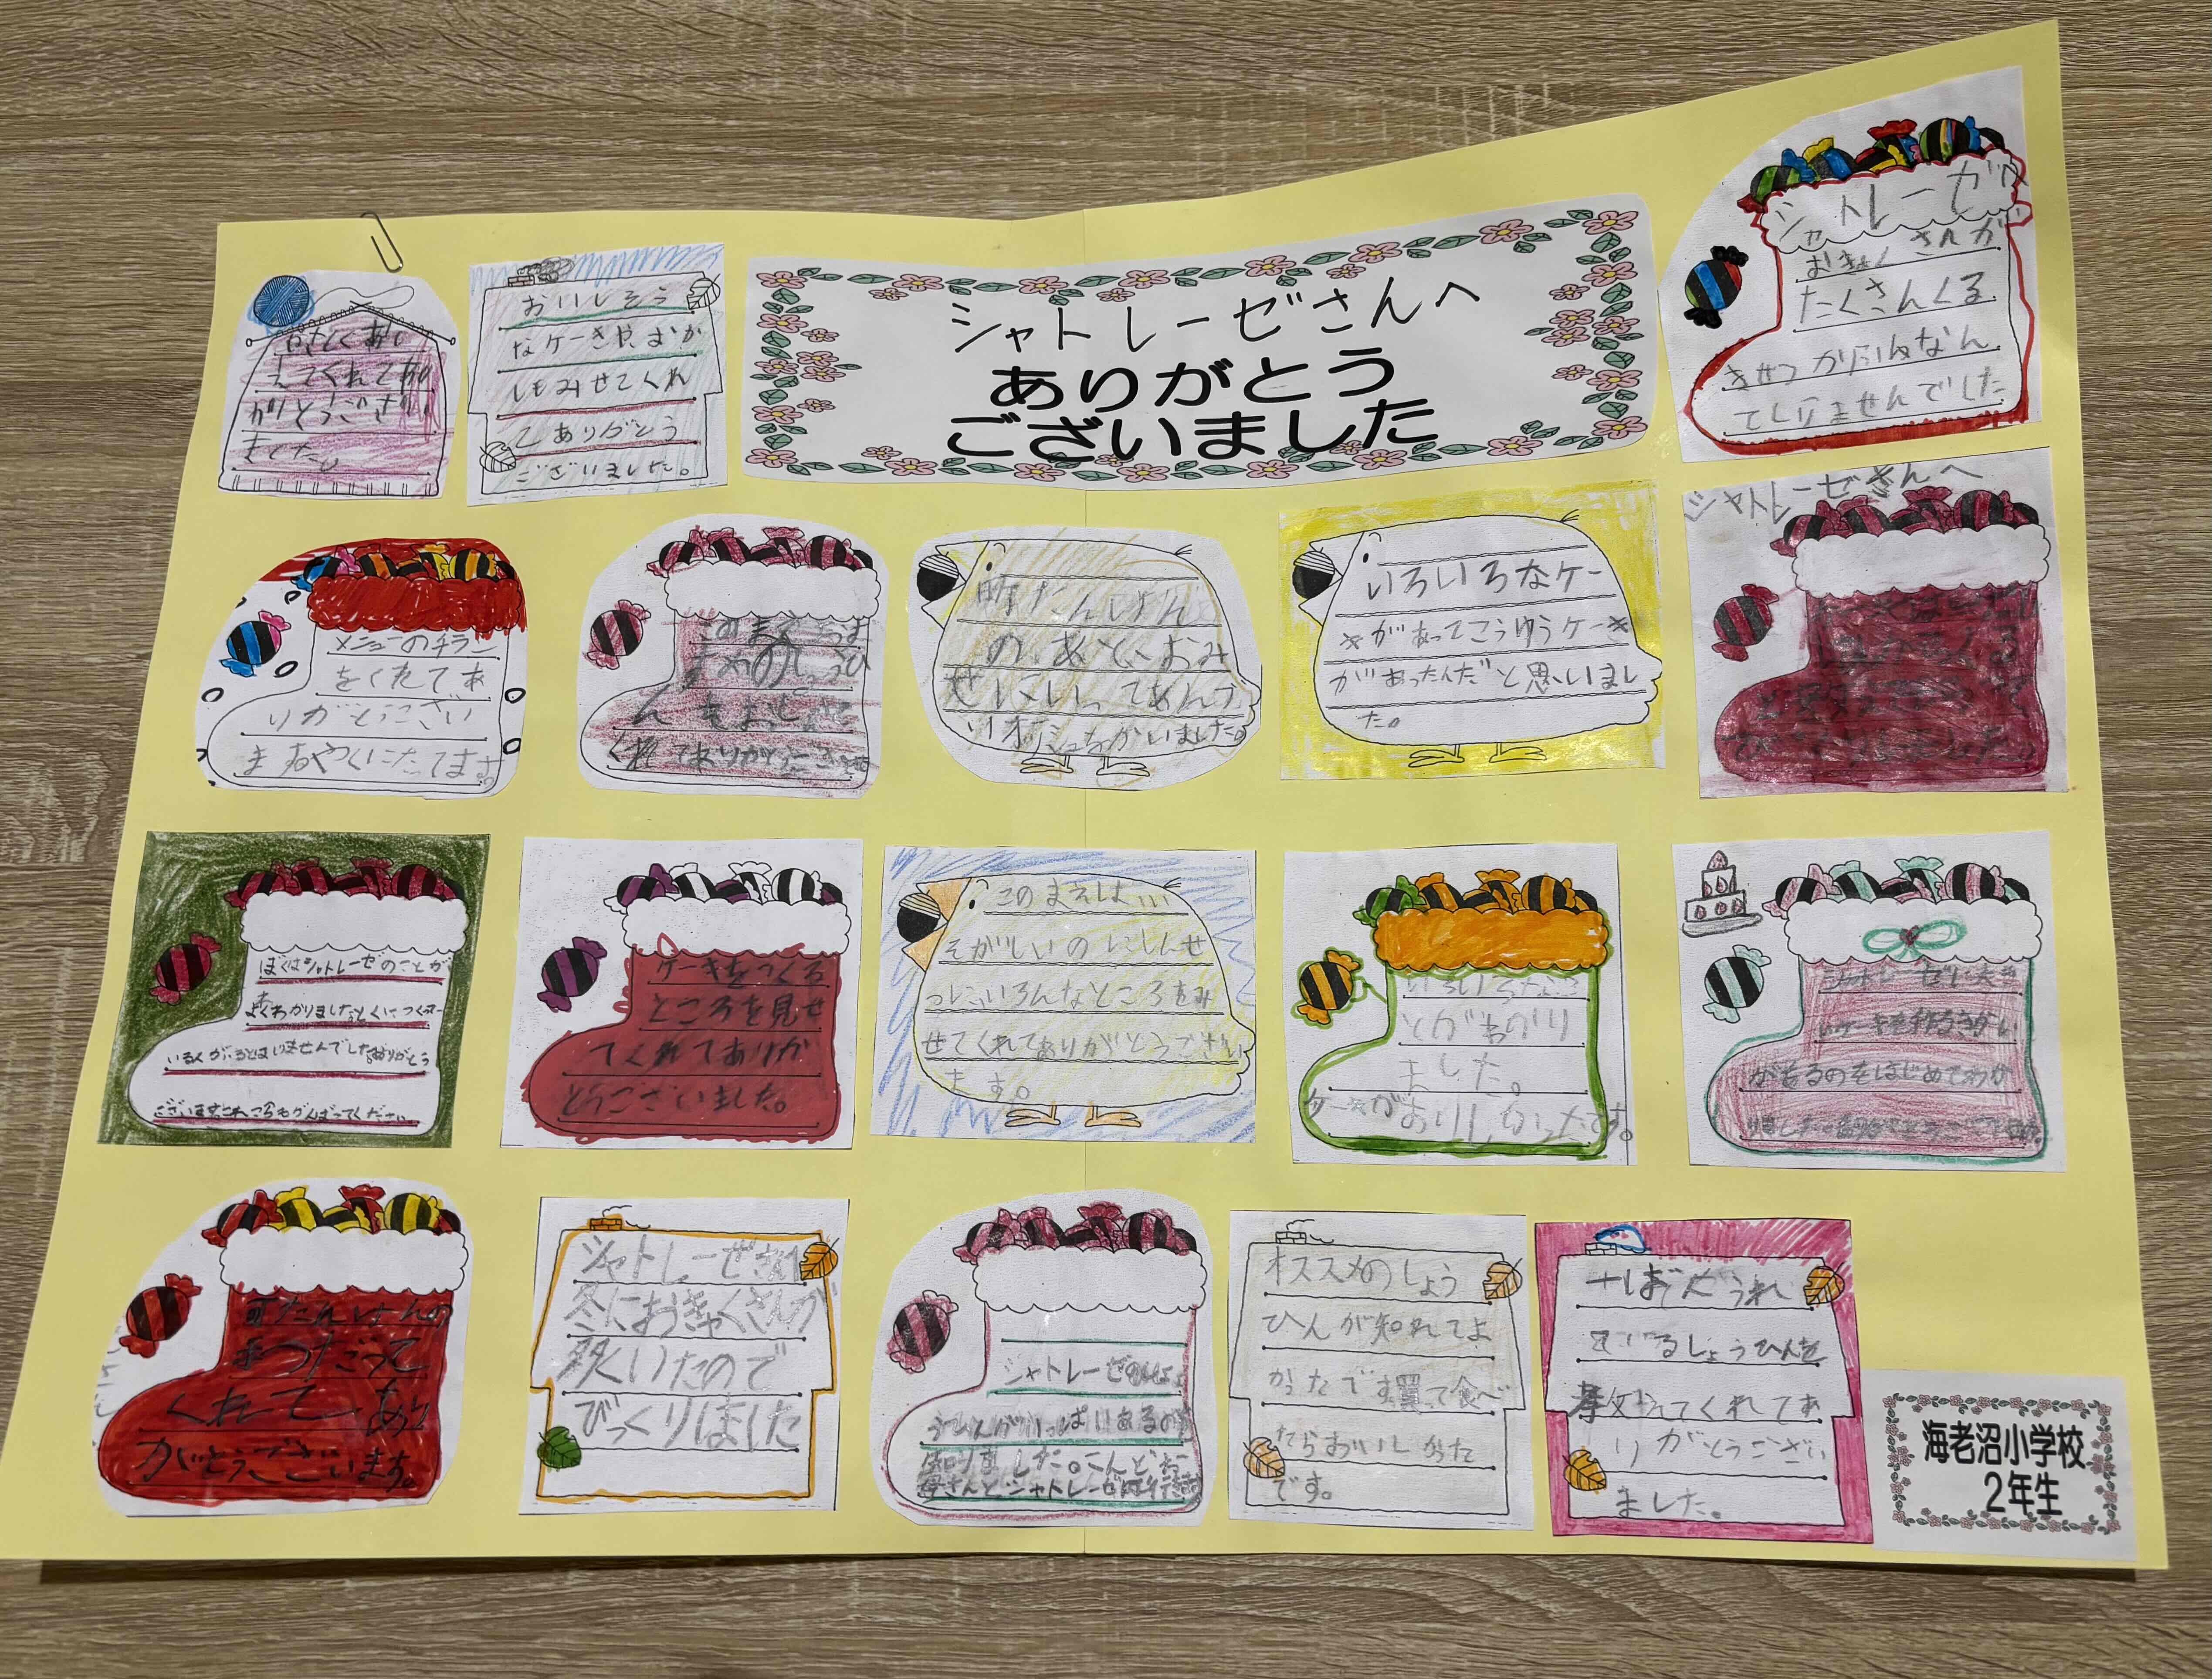 やさしくおし
えてくれてあり
がとうござい
ました。
おいしそう
なケーキや、おか
しもみせてくれ
てありがとう
ございました。
シャトレーゼさんへ
ありがとう
ございました
シャトレーゼへ
おきゃくさんが
たくさんくる
きせつが
てしりませんでした
メニューのチラシ
をくれてあ
りがとうござい
ます。やくにたてます。
このまえ
くれてありがとうござ
町たんけん
の、あとに、おみ
せにいって
かいました。
いろいろなケー
きがあってこうゆうケーキ
があったんだ"と思いまし
た。
シャトレーゼさんへ
ぼくはシャトレーゼのことが
よくわかりました
いるく しりませんでした。ありがとう
ございます。これからもがんばってください
ケーキをつくる
ところを見せ
てくれてありが
とうございました。
このまえは、い
そがしいのにしんせ
つにいろんなところをみ
せてくれてありがとうござい
ます。
いろいろなこ
とがわかり
ました。
ケーキがおいしかったです。
シャトレーゼに大き
いケーキを作るきかい
があるのをはじめてわか
りました。ありがとうござい
町たんけんの
手つだって
くれて、あり
がとうございます。
シャトレーゼさんへ
冬におきゃくさんが
多くいたので
びっくりしました
シャトレーゼのしょ
うひんがいっぱいあるのが
知りました。こんどお
母さんとシャトレーゼに行きます
オススメのしょう
ひんが知れてよ
かったです買って食べ
たらおいしかった
です。
一ばんうれ
ているしょうひんを
教えてくれてあ
りがとうござい
ました。
海老沼小学校
2年生